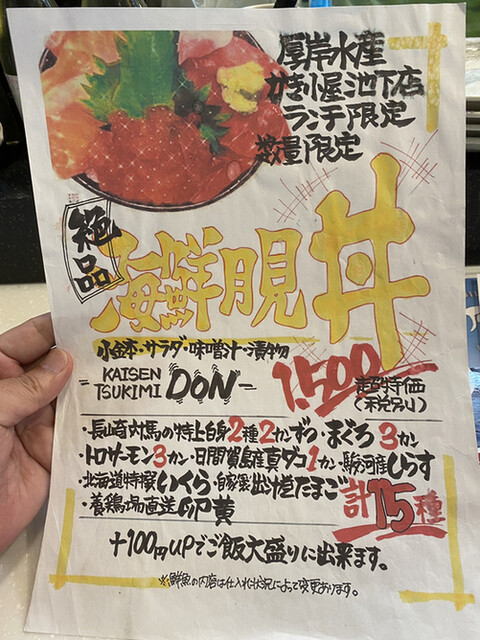 厚岸水産
かき小屋池下店
ランチ限定
数量限定
絶品
海鮮月見丼
小鉢・サラダ・味噌汁・漬物
KAISEN
TSUKIMI DON
1,500
超特価
(税別)
・長崎対馬の特上白身2種2カンずつ・まぐろ3カン
・トロサーモン3カン・日間賀島産真ダコ1カン・駿河産しらす
・北海道特撰いくら・自家製出汁巻たまご
・養鶏場直送卵黄
計15種
+100円UPでご飯大盛りに出来ます。
※鮮魚の内容は仕入れ状況によって変更あります。